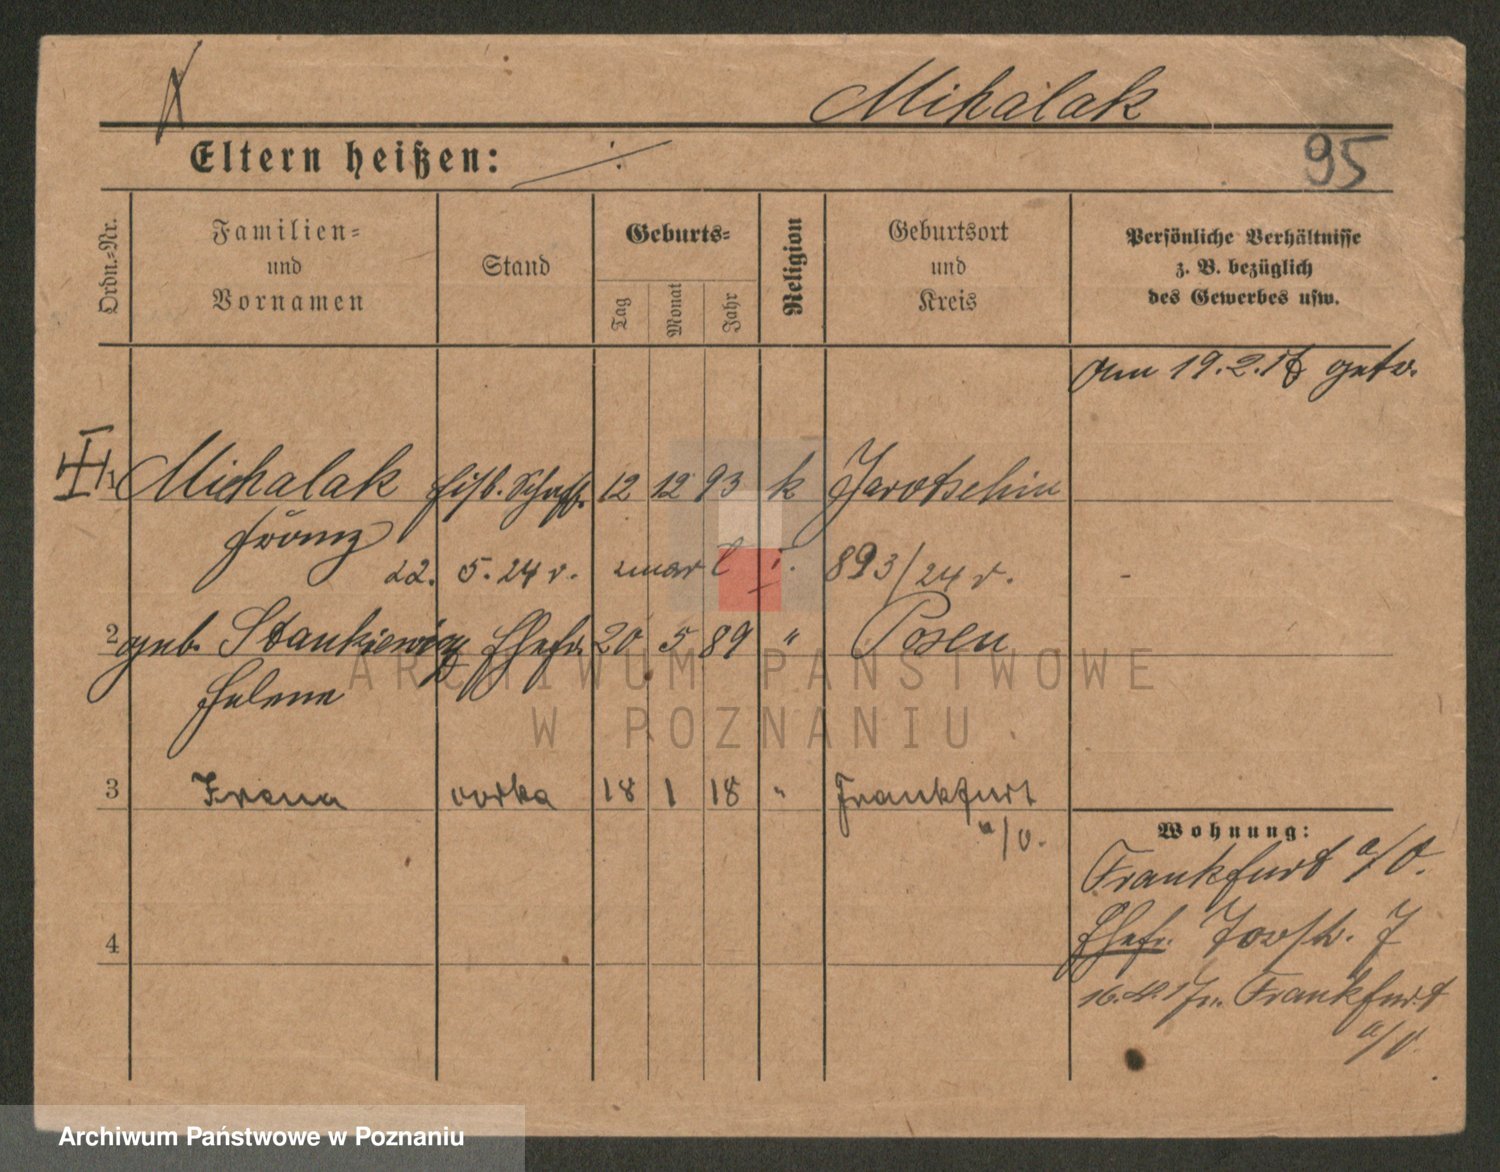 Mihalak
Eltern heißen: ./.
95
Ordn.-Nr.
Familien-
und
Vornamen
Stand
Geburts-
Tag
Monat
Jahr
Religion
Geburtsort
und
Kreis
Persönliche Verhältnisse
z. B. bezüglich
des Gewerbes usw.
Am 19. 2. 17 getr.
1 Michalak 12 12 93 k Jarotschin
Franz
22. 5. 24 r. zmarł i. 893/24 r.
2 geb. Stankiewicz Ehefr. 20 5 89 " Posen
Helene
3 Irena córka 18 1 18 " Frankfurt
a/O.
4
Wohnung:
Frankfurt a/O.
Ehefr. 7
Frankfurt
a/O.
ARCHIWUM PAŃSTWOWE
W POZNANIU
Archiwum Państwowe w Poznaniu